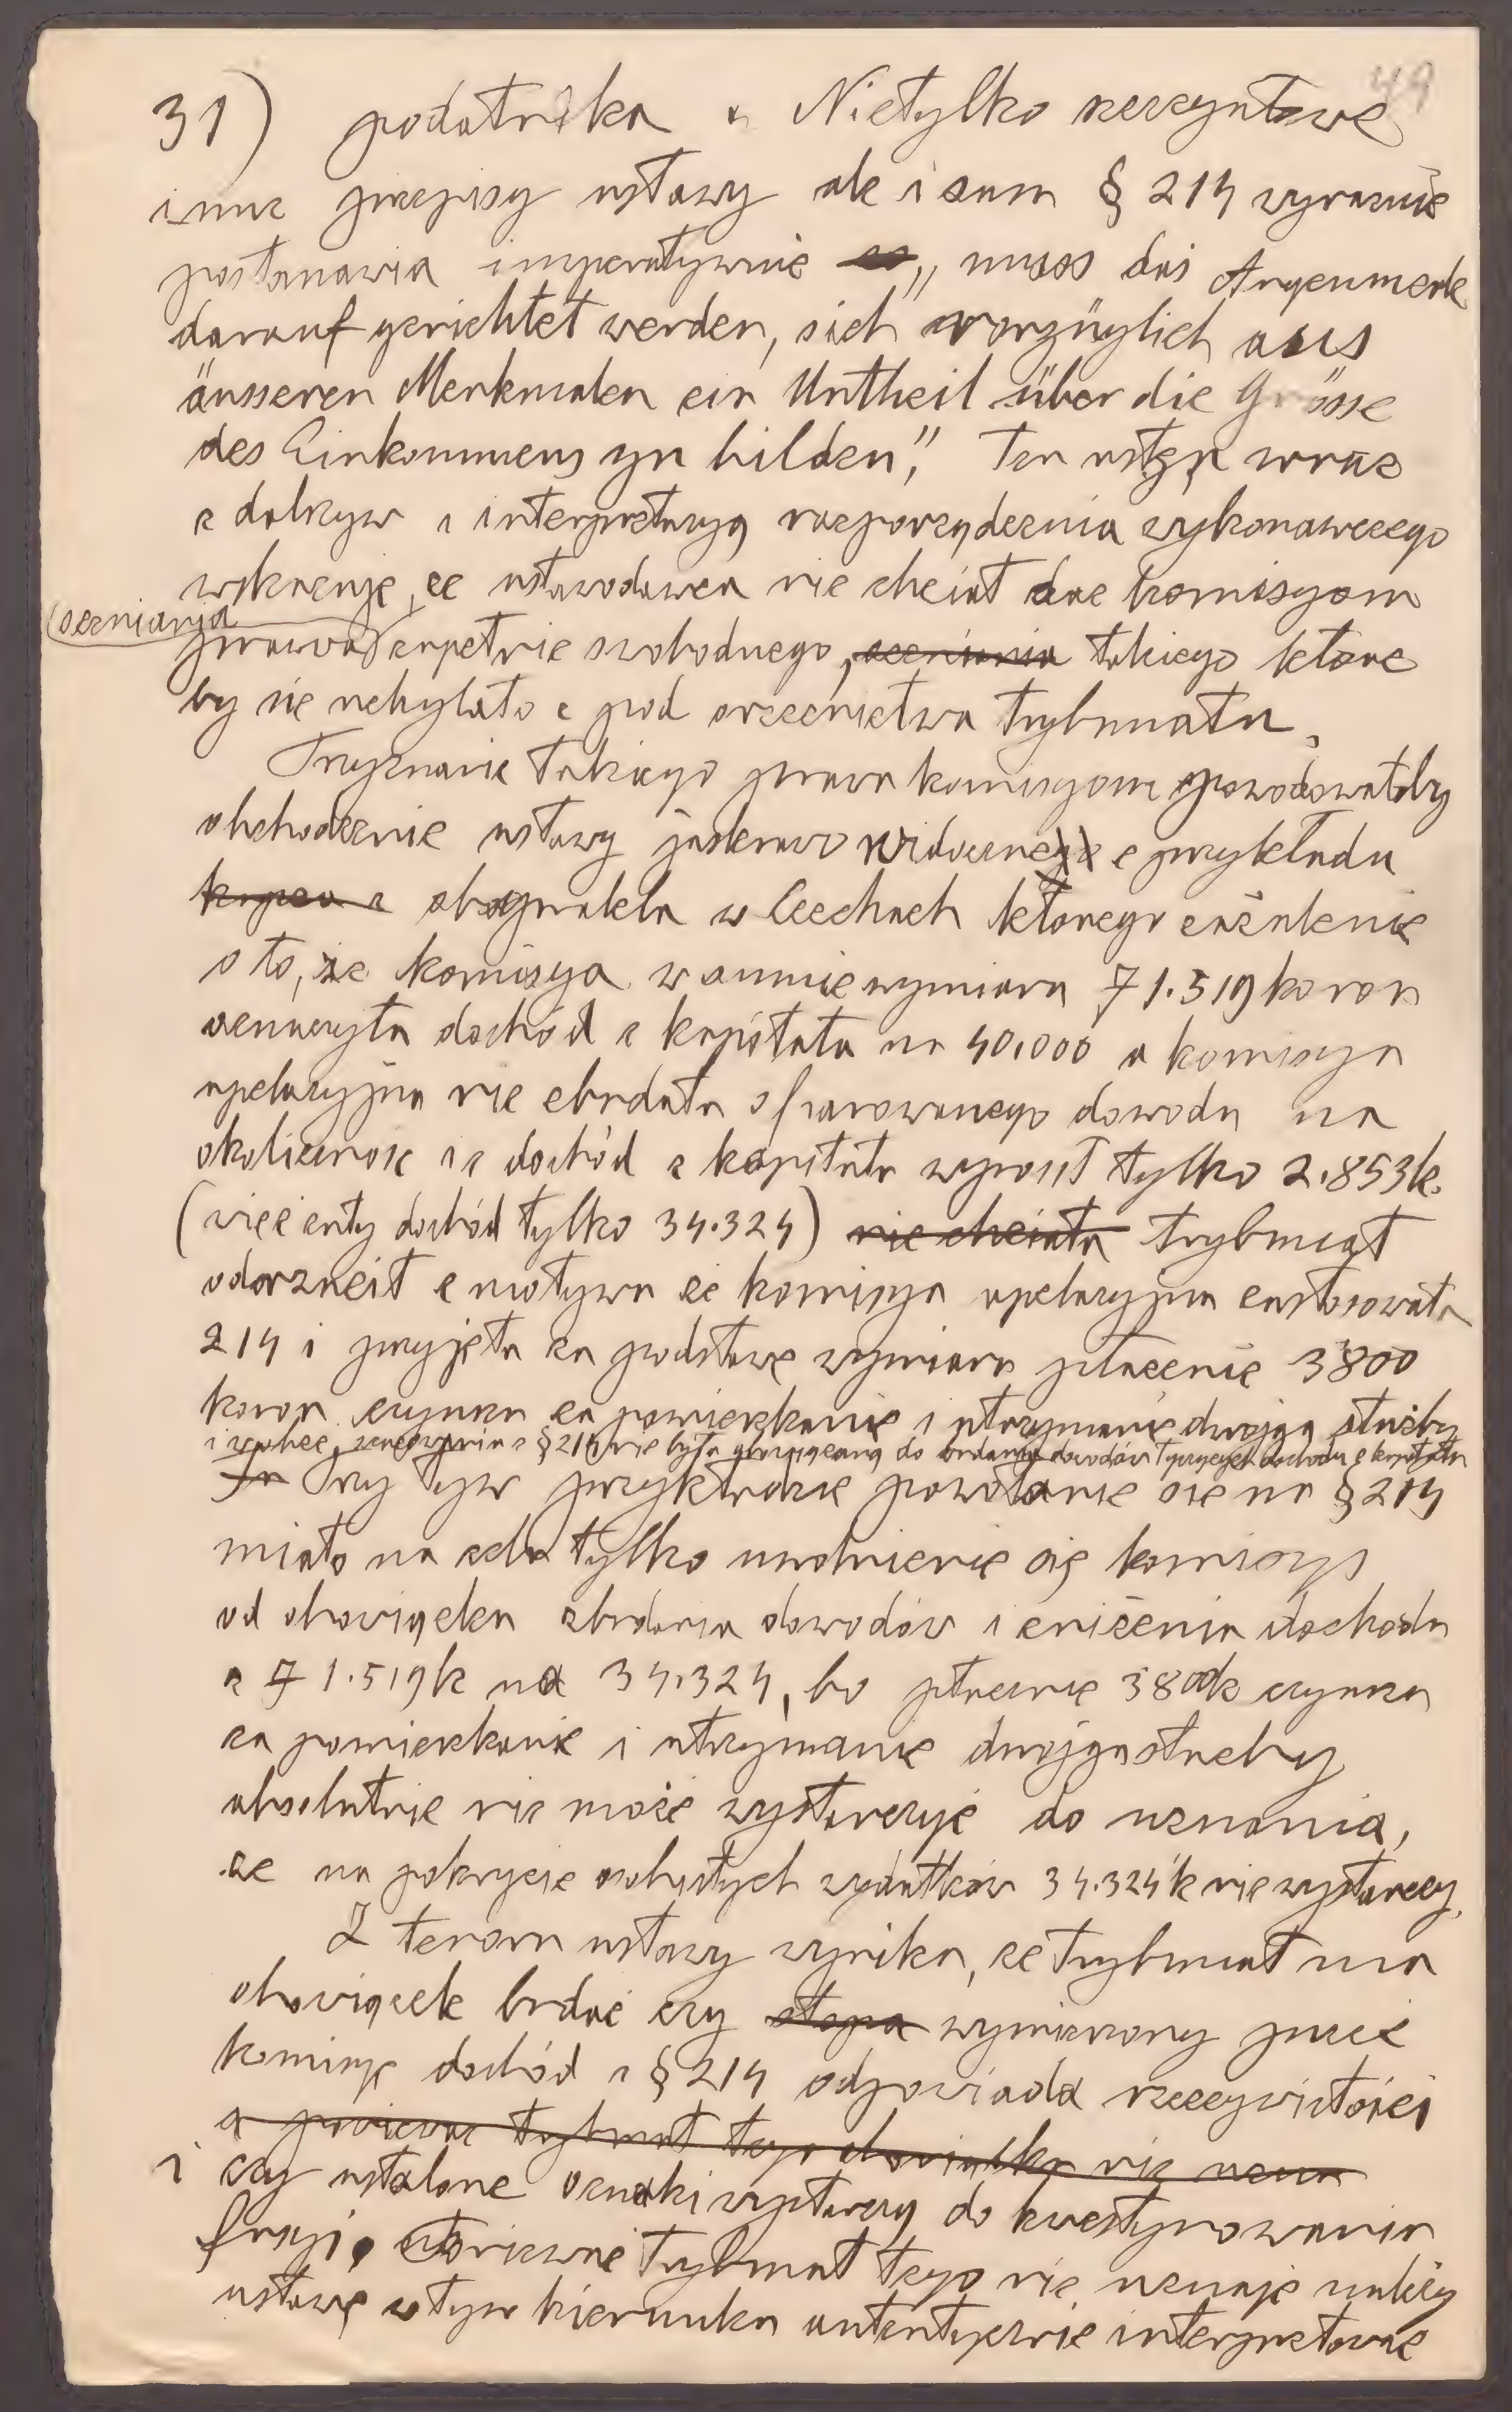 49
31) podatnika. Nietylko zeszytowe
inne przepisy ustawy ale i sam § 214 wyraźnie
postanawia imperatywnie „muss das Augenmerk
darauf gerichtet werden, sich vorzüglich aus
äusseren Merkmalen ein Urtheil über die Grösse
des Einkommens zu bilden". Ten ustęp wraz
z dalszym i interpretacyą rozporządzenia wykonawczego
wskazuje, że ustawodawca nie chciał dać komisyom
(oceniania
prawa zupełnie swobodnego, oceniania takiego które
by się uchylało z pod orzecznictwa trybunału.
Przyznanie takiego prawa komisyom spowodowałoby
obchodzenie ustawy jaskrawo widoczne z przykładu
kupca z obywatela w Czechach którego zażalenie
o to, że komisya w sumie wymiaru 71.519 koron
oznaczyła dochód z kapitału na 40.000 a komisya
apelacyjna nie zbadała ofiarowanego dowodu na
okoliczność iż dochód z kapitału wynosił tylko 2.853 k.
(więc cały dochód tylko 34.324) nie chciała trybunał
odrzucił z motywu że komisya apelacyjna zastosowała
214 i przyjęła za podstawę wymiaru płacenie 3800
koron czynszu za pomieszkanie i utrzymanie dwojga służby
i wobec zastosowania § 214 nie była obowiązaną do badania dowodów tyczących dochodu z kapitału
Przy tym przykładzie powołanie się na § 214
miało na celu tylko uwolnienie się komisyi
od obowiązku zbadania dowodów i zniżenia dochodu
z 71.519 k na 34.324, bo płacenie 3800 k czynszu
za pomieszkanie i utrzymanie dwojga służby
absolutnie nie może wystarczyć do uznania,
że na pokrycie osobistych wydatków 34.324 k nie wystarczy.
Z tenoru ustawy wynika, że trybunał ma
obowiązek badać czy stopa wymierzony przez
komisyę dochód z § 214 odpowiada rzeczywistości
a ponieważ trybunał tego obowiązku nie uzna
i czy ustalone oznaki wystarczą do kwestyonowania
fasyi. Ponieważ trybunał tego nie uznaje należy
ustawę w tym kierunku autentycznie interpretować